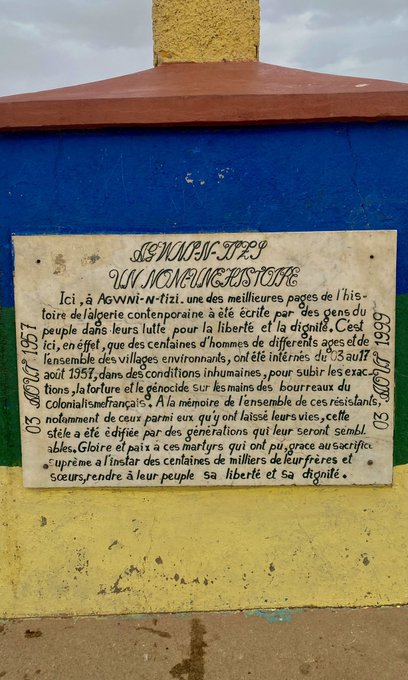 AGWNI-N-TIZI
UN NOM-UNE HISTOIRE
Ici, à AGWNI-N-tizi. une des meillieures pages de l'his-
toire de l'algerie contenporaine à été écrite par des gens du
peuple dans leurs lutte pour la liberté et la dignité. C'est
ici, en éffet, que des centaines d'hommes de differents ages et de
l'ensemble des villages environnants, ont été internés du 03 au 17
août 1957, dans des conditions inhumaines, pour subir les exac-
tions, la torture et le génocide sur les mains des bourreaux du
colonialisme français. A la mémoire de l'ensemble de ces résistants,
notamment de ceux parmi eux qu'y ont laissé leurs vies, cette
stèle a été édifiée par des générations qui leur seront sembl
ables. Gloire et paix à ces martyrs qui ont pu, grace au sacrifice
suprème a l'instar des centaines de milliers de leur frères et
sœurs, rendre à leur peuple sa liberté et sa dignité.
03 AOUT 1957
03 AOUT 1999